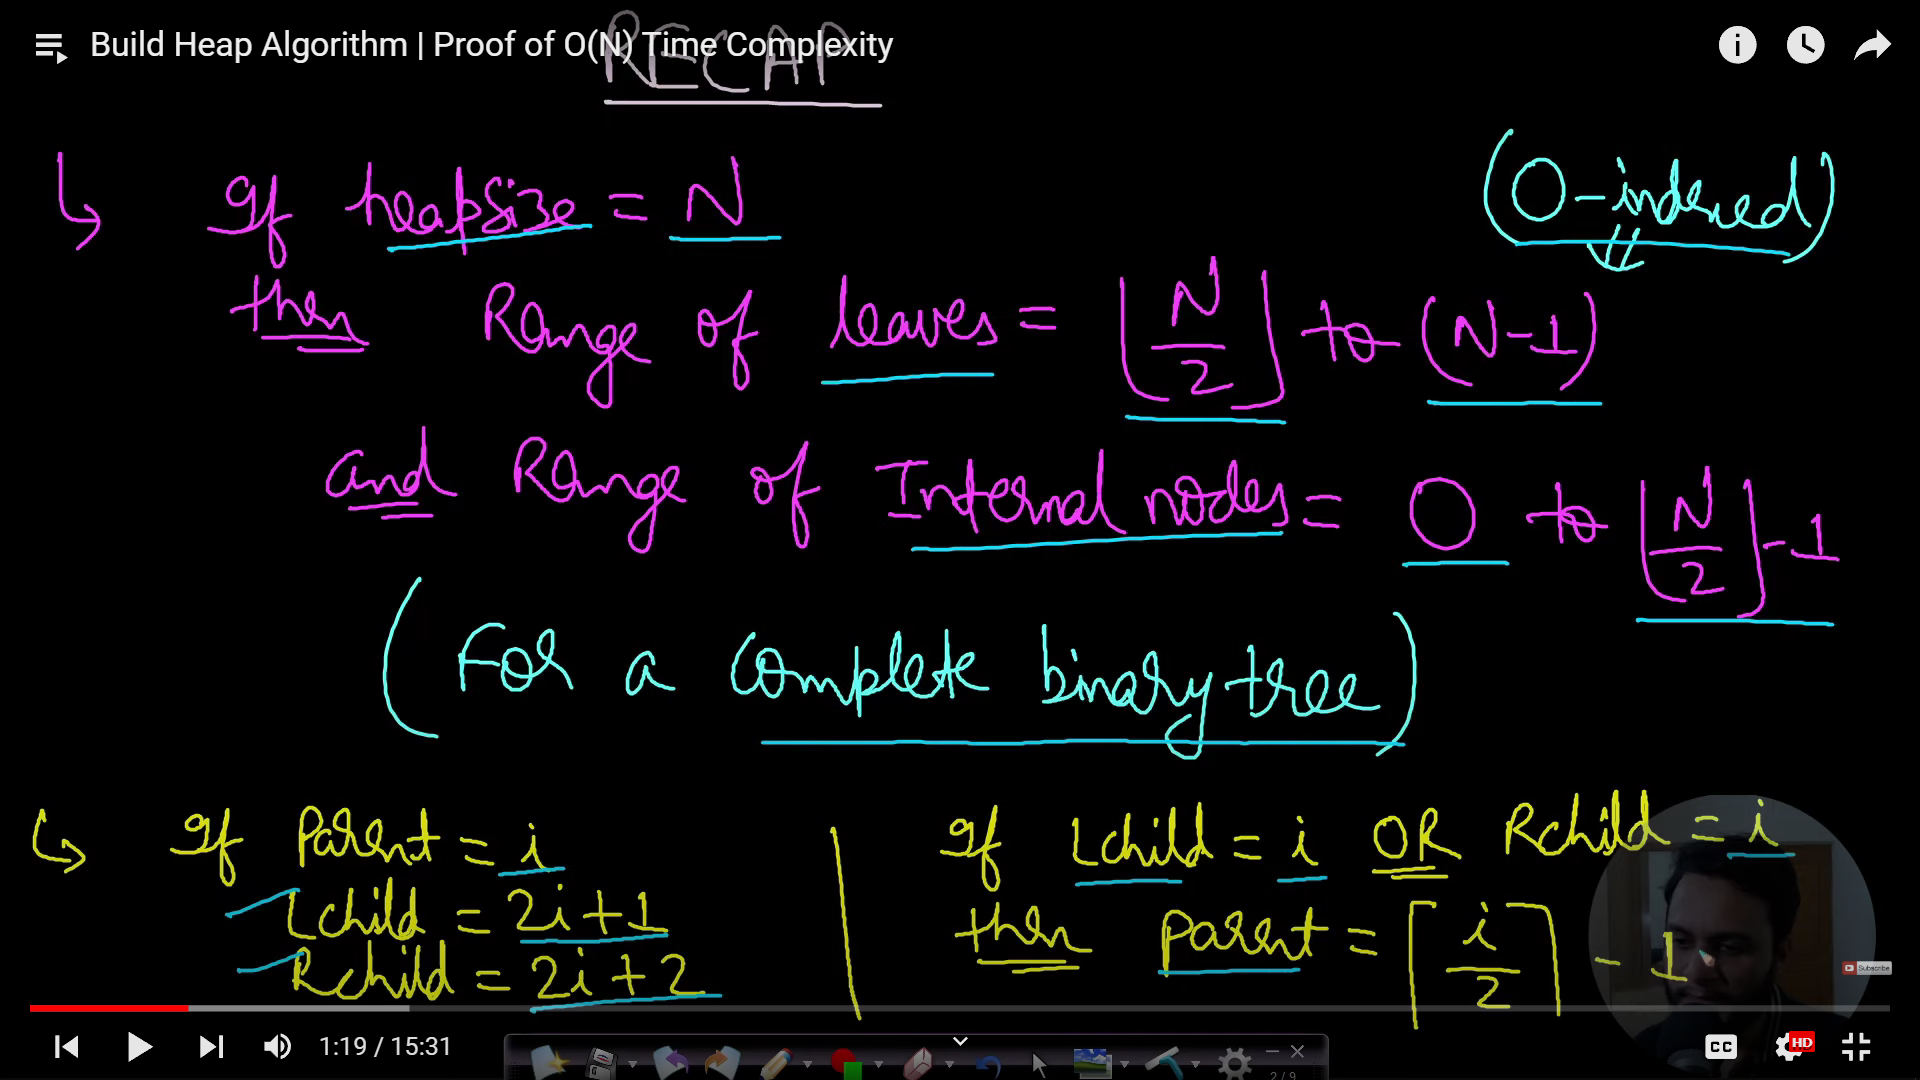 Build Heap Algorithm | Proof of O(N) Time Complexity
RECAP
(0-indexed)
If heapsize = N
then Range of leaves = ⌊N/2⌋ to (N-1)
and Range of Internal nodes = 0 to ⌊N/2⌋-1
(For a complete binary tree)
If Parent = i
Lchild = 2i+1
Rchild = 2i+2
If Lchild = i OR Rchild = i
then parent = ⌈i/2⌉ - 1
Subscribe
1:19 / 15:31
CC
HD
2/9